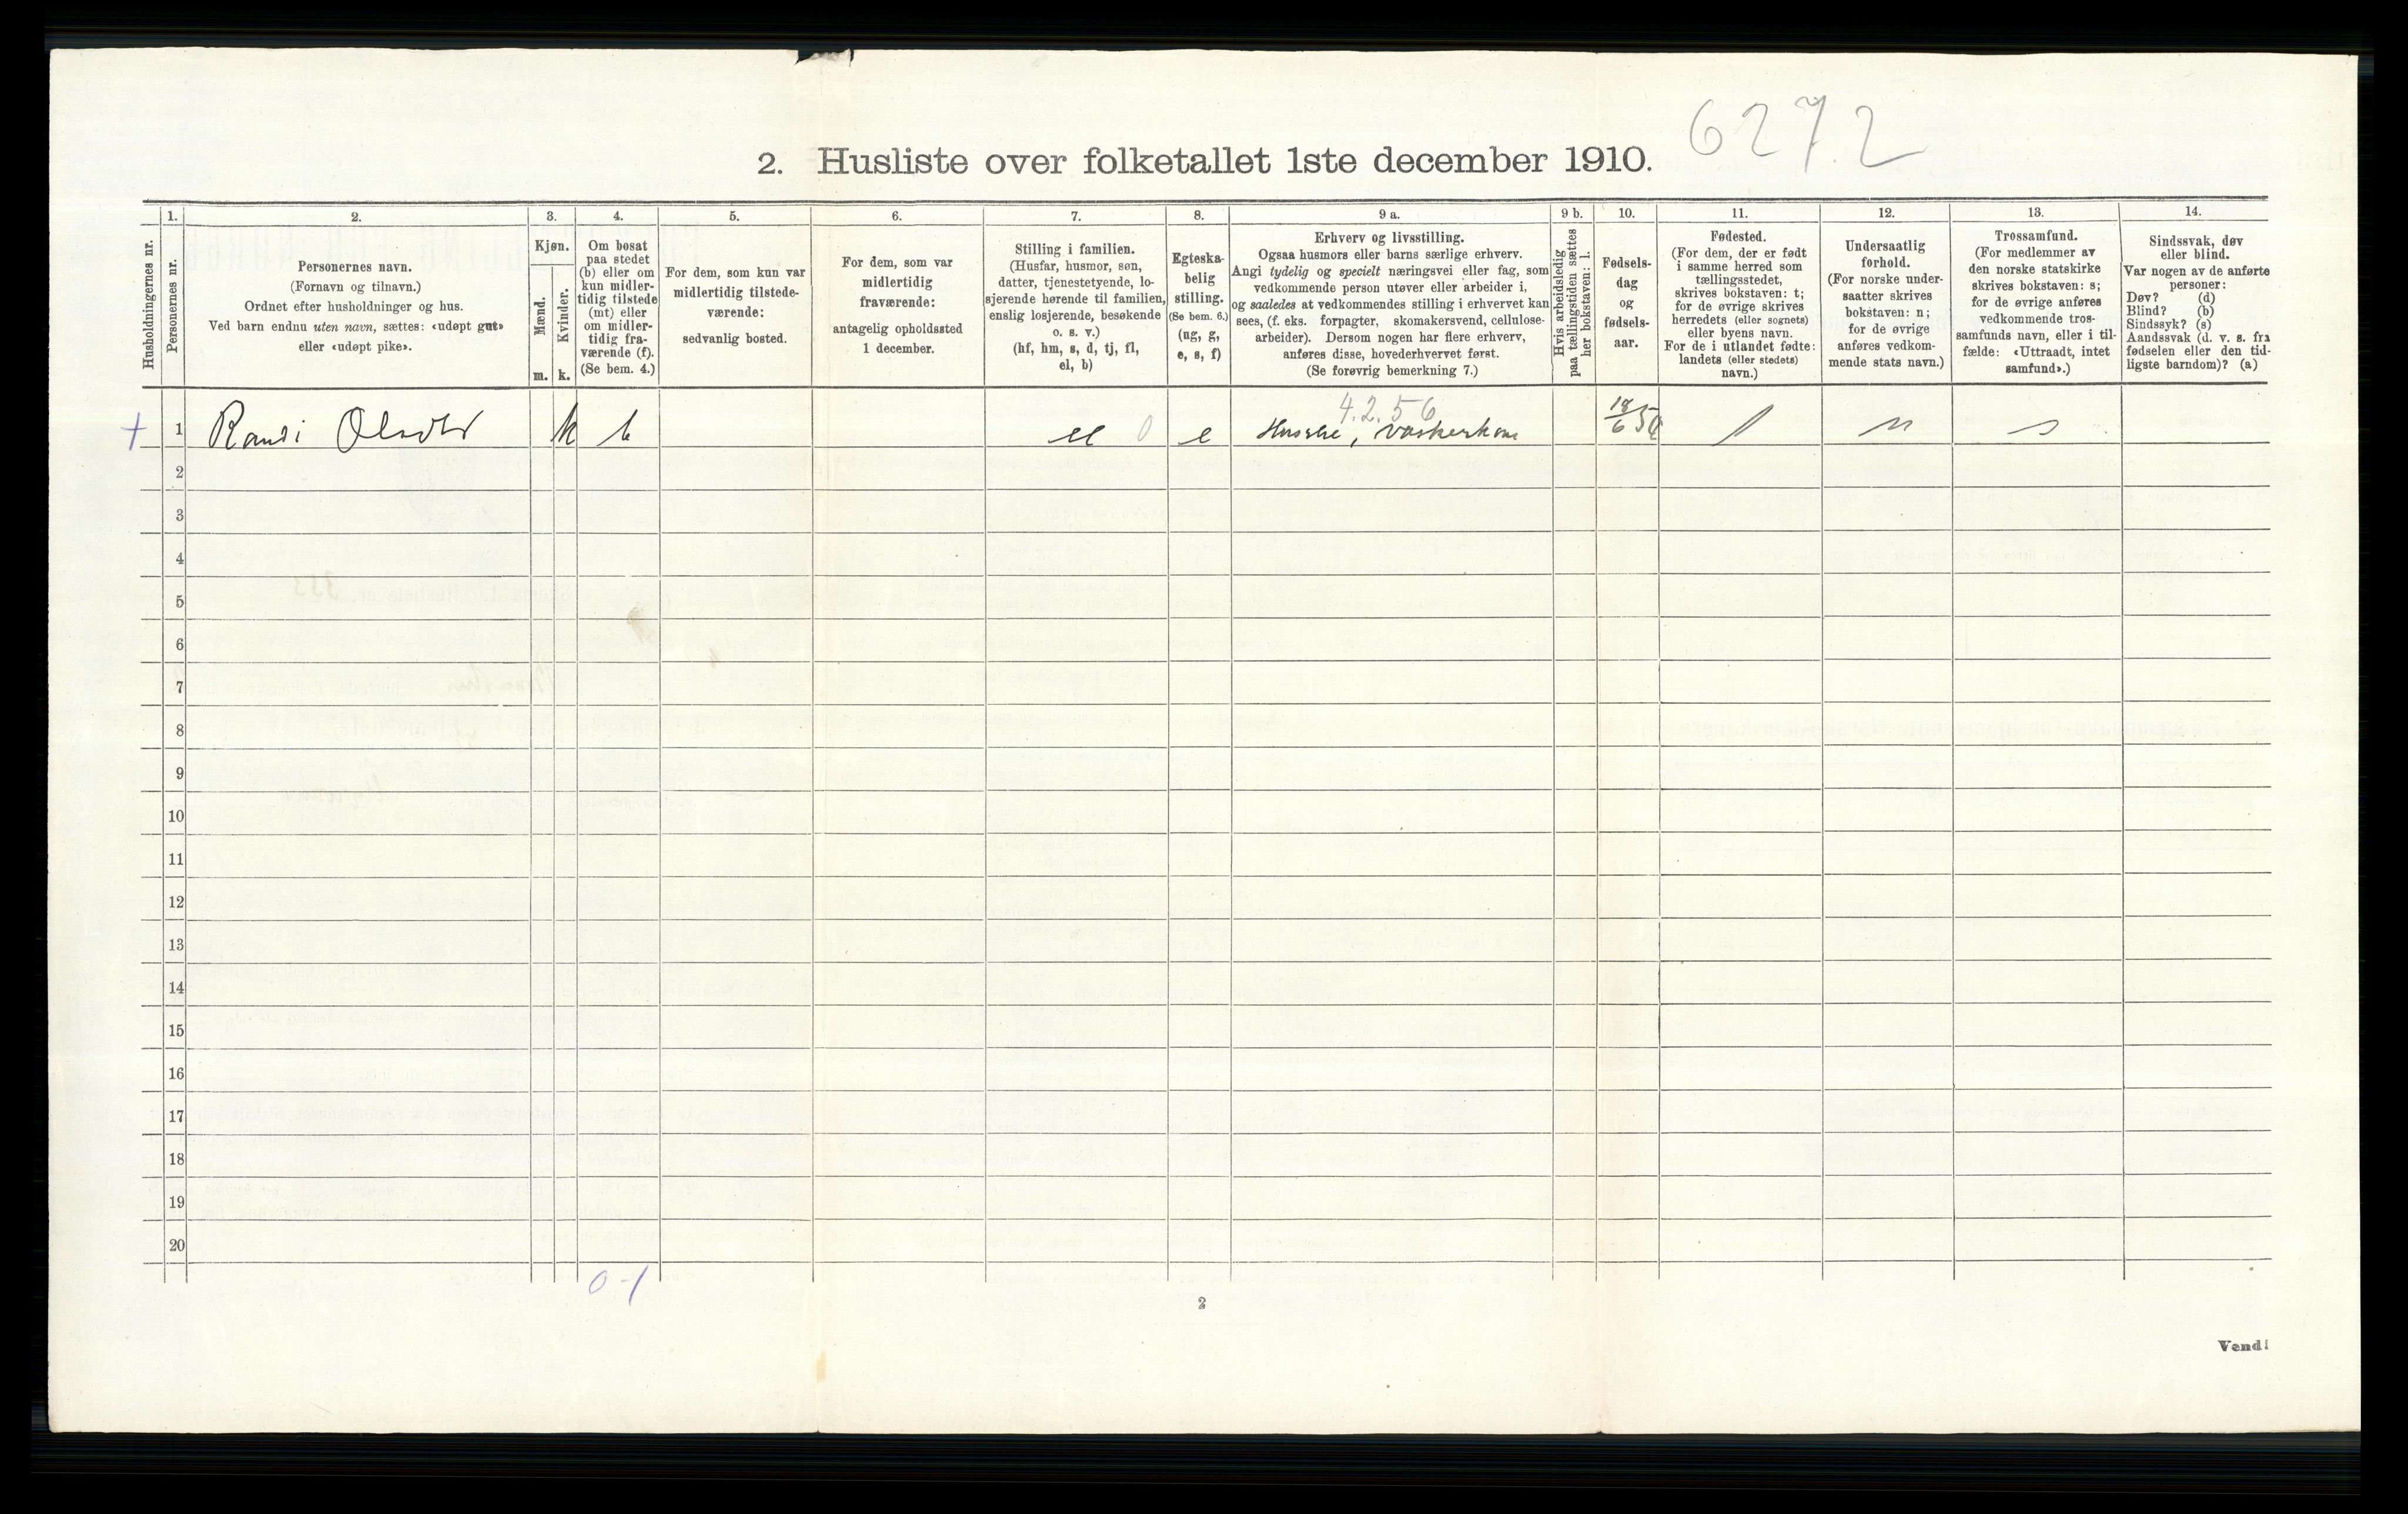 6272
2. Husliste over folketallet 1ste december 1910.
Husholdningernes nr.
1.
Personernes nr.
2.
Personernes navn.
(Fornavn og tilnavn.)
Ordnet efter husholdninger og hus.
Ved barn endnu uten navn, sættes: «udøpt gut»
eller «udøpt pike».
3.
Kjøn.
Mænd.
Kvinder.
m. k.
4.
Om bosat
paa stedet
(b) eller om
kun midler-
tidig tilstede
(mt) eller
om midler-
tidig fra-
værende (f).
(Se bem. 4.)
5.
For dem, som kun var
midlertidig tilstede-
værende:
sedvanlig bosted.
6.
For dem, som var
midlertidig
fraværende:
antagelig opholdssted
1 december.
7.
Stilling i familien.
(Husfar, husmor, søn,
datter, tjenestetyende, lo-
sjerende hørende til familien,
enslig losjerende, besøkende
o. s. v.)
(hf, hm, s, d, tj, fl,
el, b)
8.
Egteska-
belig
stilling.
(Se bem. 6.)
(ug, g,
e, s, f)
9 a.
Erhverv og livsstilling.
Ogsaa husmors eller barns særlige erhverv.
Angi tydelig og specielt næringsvei eller fag, som
vedkommende person utøver eller arbeider i,
og saaledes at vedkommendes stilling i erhvervet kan
sees, (f. eks. forpagter, skomakersvend, cellulose-
arbeider). Dersom nogen har flere erhverv,
anføres disse, hovederhvervet først.
(Se forøvrig bemerkning 7.)
9 b.
Hvis arbeidsledig
paa tællingstiden sættes
her bokstaven: l.
10.
Fødsels-
dag
og
fødsels-
aar.
11.
Fødested.
(For dem, der er født
i samme herred som
tællingsstedet,
skrives bokstaven: t;
for de øvrige skrives
herredets (eller sognets)
eller byens navn.
For de i utlandet fødte:
landets (eller stedets)
navn.)
12.
Undersaatlig
forhold.
(For norske under-
saatter skrives
bokstaven: n;
for de øvrige
anføres vedkom-
mende stats navn.)
13.
Trossamfund.
(For medlemmer av
den norske statskirke
skrives bokstaven: s;
for de øvrige anføres
vedkommende tros-
samfunds navn, eller i til-
fælde: «Uttraadt, intet
samfund».)
14.
Sindssvak, døv
eller blind.
Var nogen av de anførte
personer:
Døv? (d)
Blind? (b)
Sindssyk? (s)
Aandssvak (d. v. s. fra
fødselen eller den tid-
ligste barndom)? (a)
4.2.56
+ 1 Randi Olsdtr k b el 0 e vaskerkone n s
2
3
4
5
6
7
8
9
10
11
12
13
14
15
16
17
18
19
20
0-1
2
Vend!